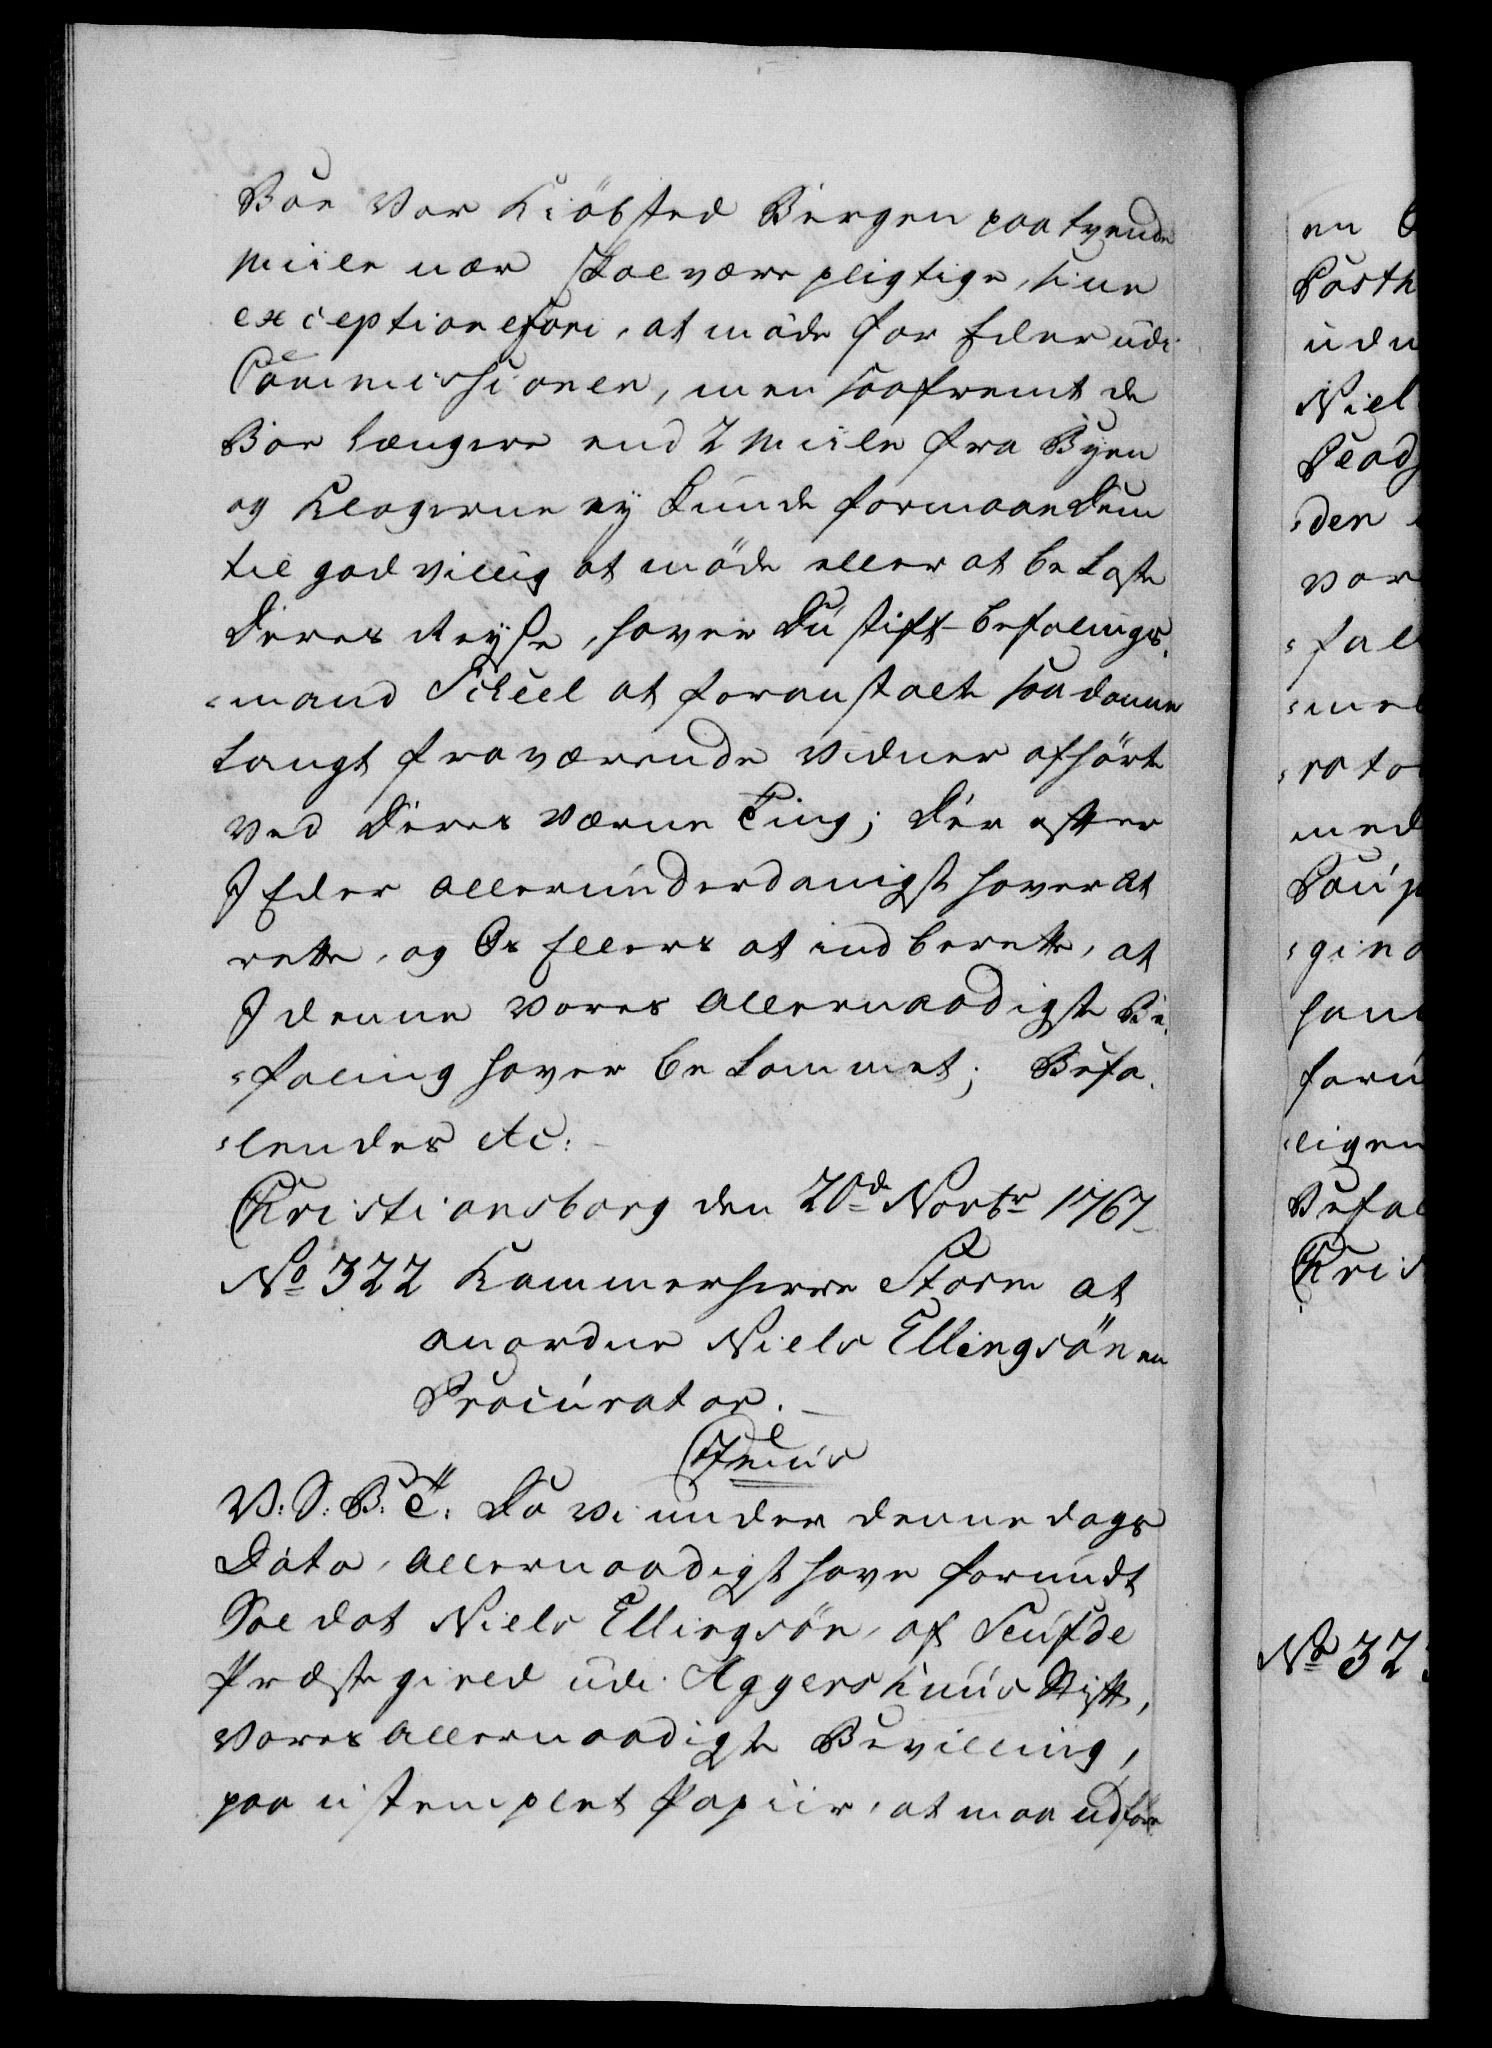 Boe Vor Kiöbsted Bergen paa tvende
Miile nær skal være pligtige, sine
exceptione fori, at möde for Eder udi
Commissionen, men saafremt de
Boe længere end 2 Miile fra Byen
og Klagerne ey kunde formaae Dem
til godvillig at möde eller at bekoste
Deres Reyse, haver Du Stift-befalings-
-mand Scheel at foranstalte saadanne
langt fraværende Vidner afhört
ved Deres Værne Ting; Der efter
I Eder allerunderdanigst haver at
rette, og Os Ellers at indberette, at
I denne Vores Allernaadigste Be-
-faling haver bekommet; Befa-
-lendes etc:
Christiansborg den 20de Novbr 1767
No 322 Kammerherre Storm at
anordne Niels Ellingsön en
Procurator.
V: S: B: T: Da Vi under denne dags
Dato, Allernaadigst have forundt
Soldat Niels Ellingsön, af
Præstegield udi Aggershuus Stift,
Vores Allernaadigste Bevilling,
paa ustemplet Papiir, at maa udföre
en
Posth
udu
Niel
den
vor
-fal
med
han
-ligen
Befal
Chris
No 32